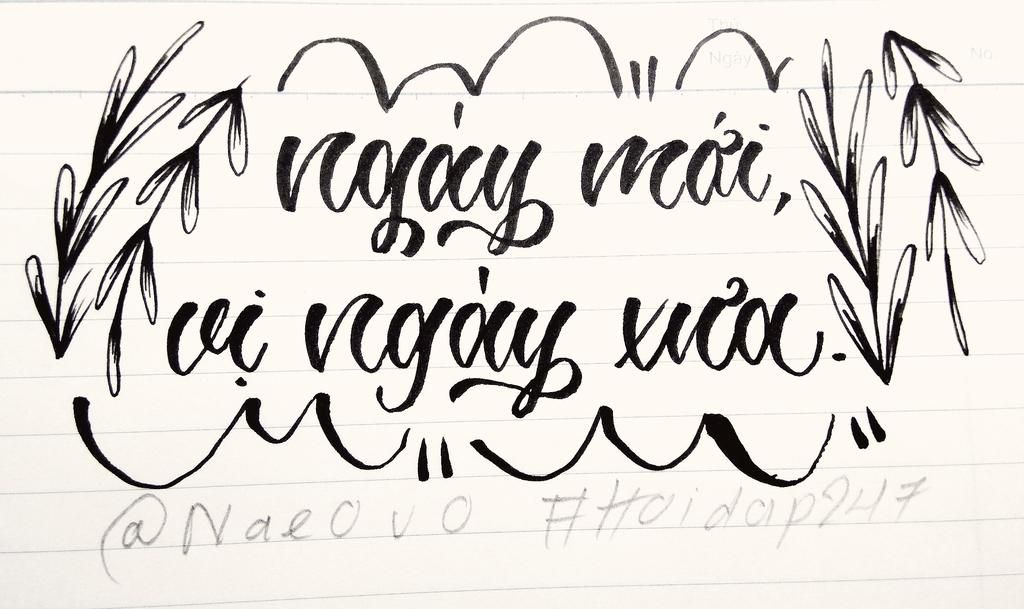 Thứ
Ngày
No.
ngày mới,
vị ngáy xưa.
@NaeOvO #Hoidap247